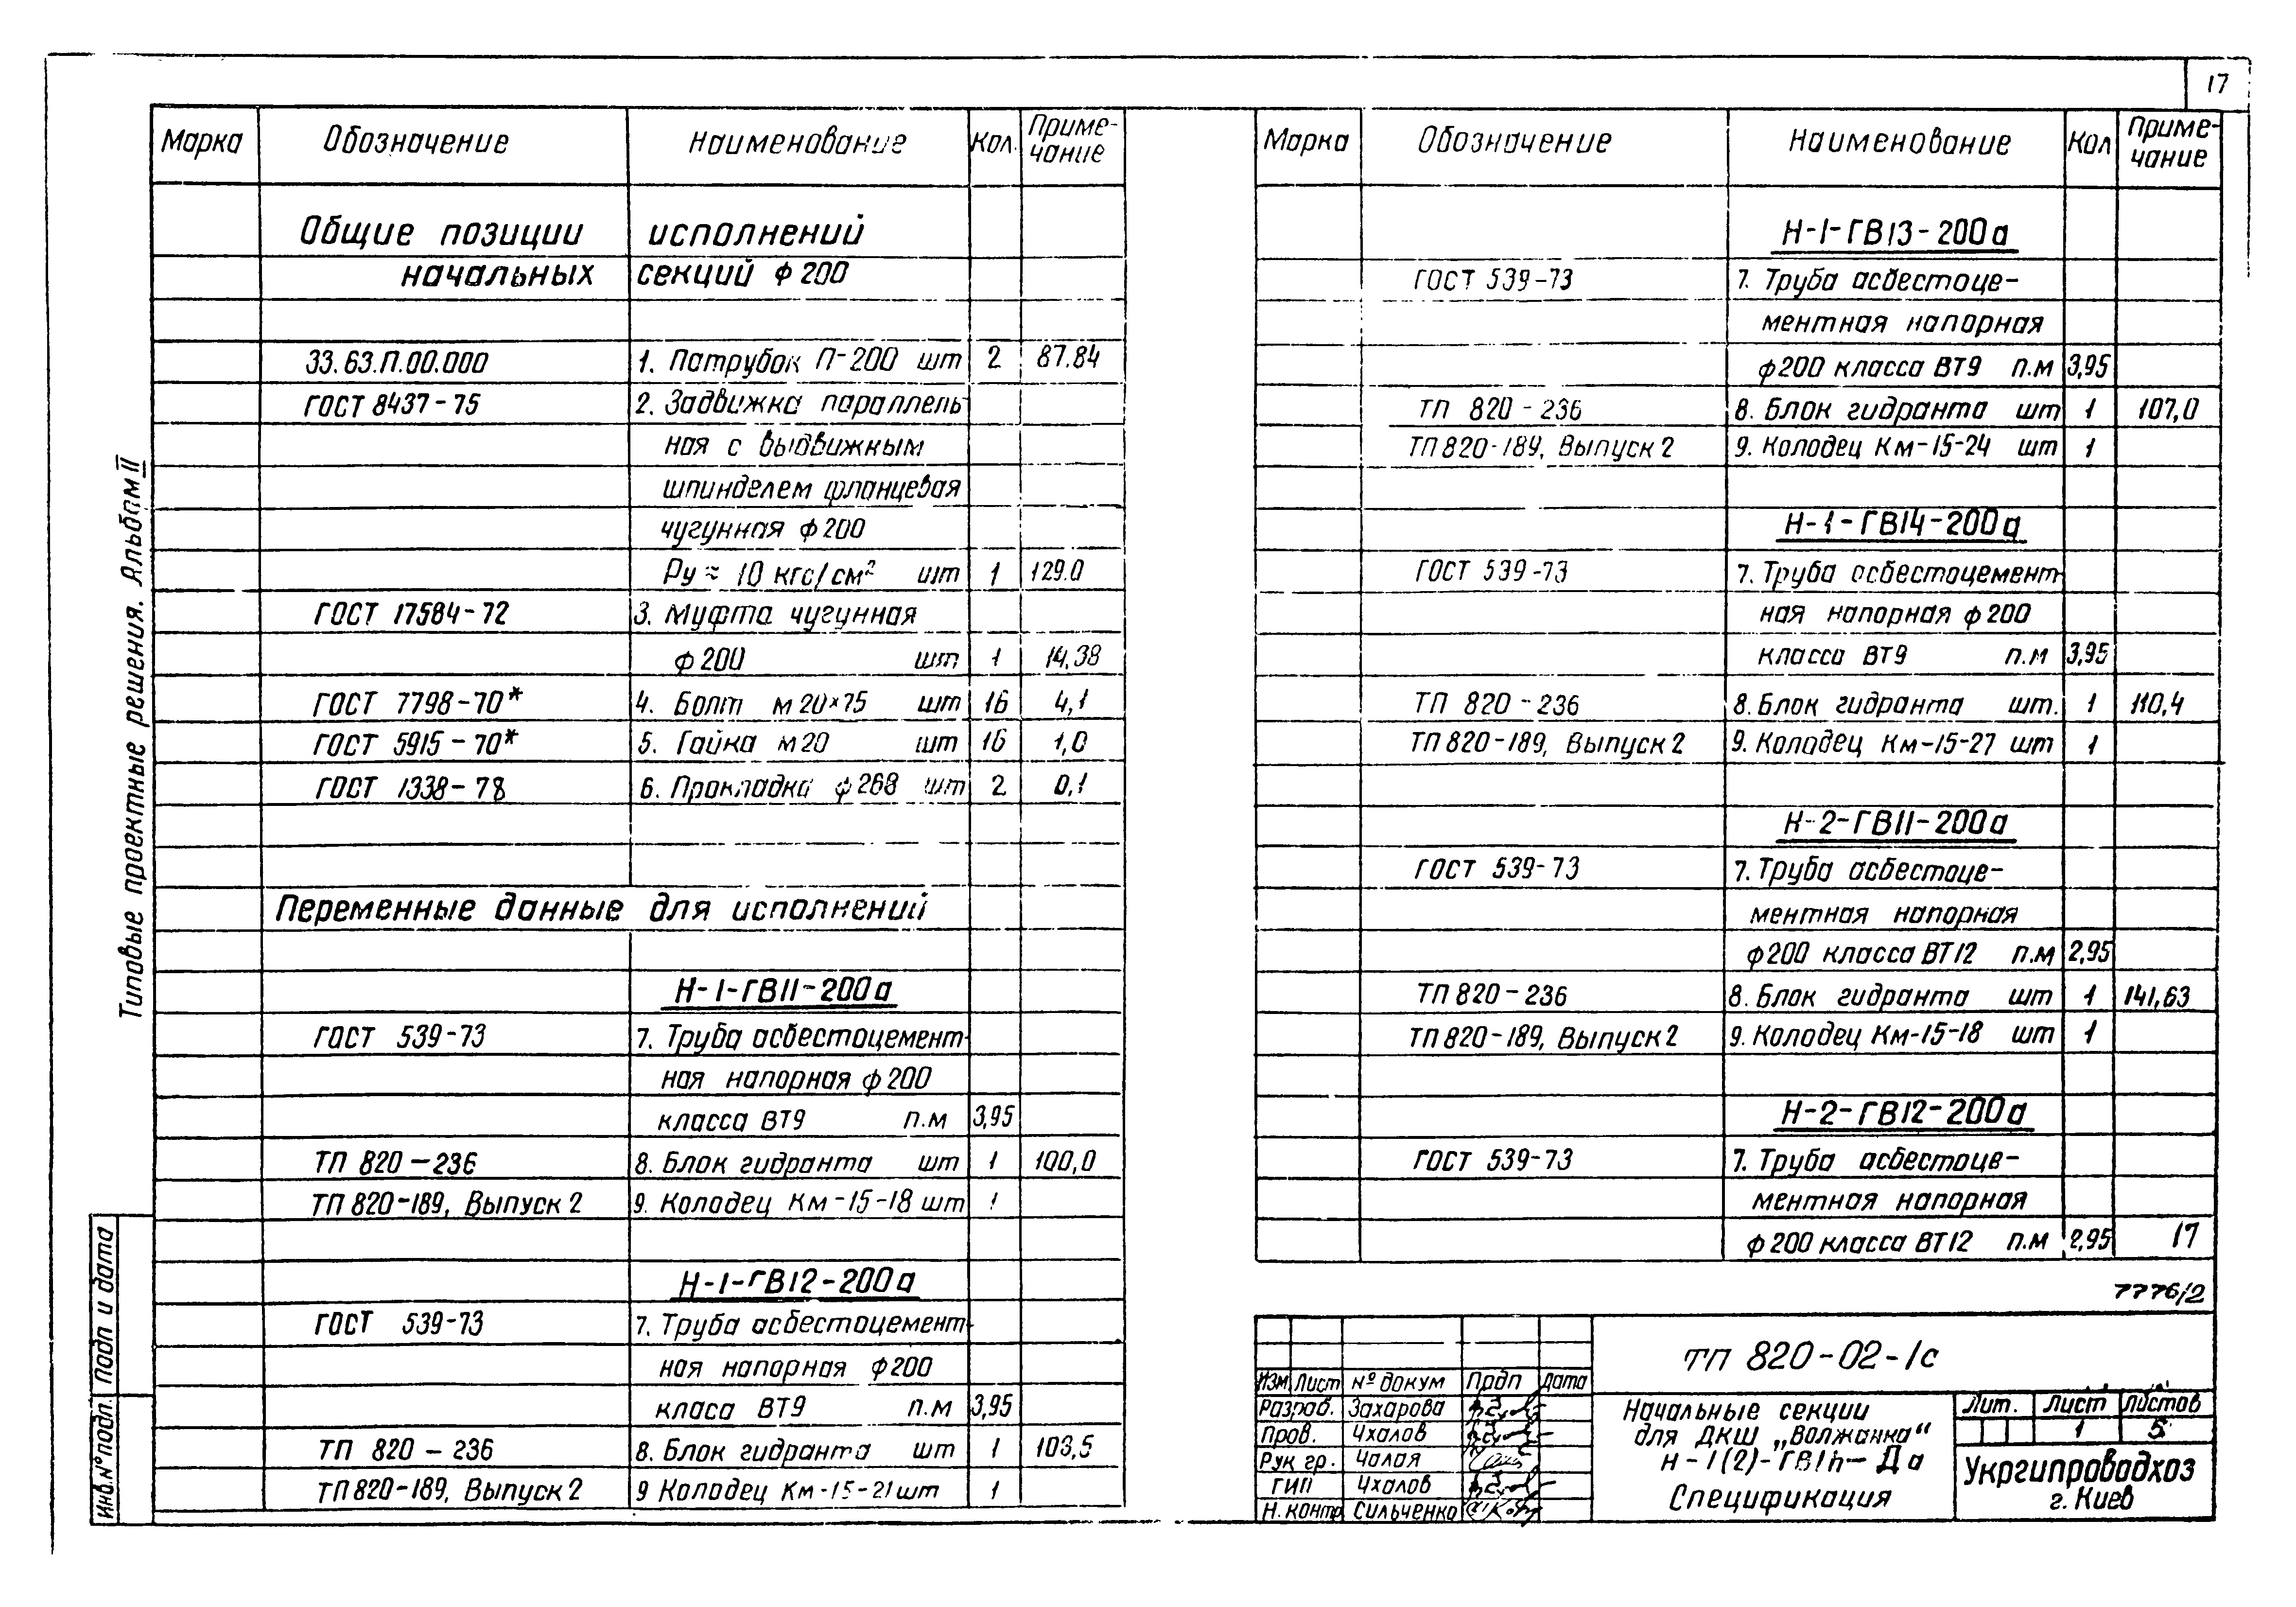 17
Марка Обозначение Наименование Кол. Приме-
чание
Общие позиции исполнений
начальных секций ф 200
33.63.П.00.000 1. Патрубок П-200 шт 2 87.84
ГОСТ 8437-75 2. Задвижка параллель
ная с выдвижным
шпинделем фланцевая
чугунная ф 200
Ру ≈ 10 кгс/см² шт 1 129.0
ГОСТ 17584-72 3. Муфта чугунная
ф 200 шт 1 14,38
ГОСТ 7798-70* 4. Болт м 20×75 шт 16 4,1
ГОСТ 5915-70* 5. Гайка м 20 шт 16 1,0
ГОСТ 1338-78 6. Прокладка ф 268 шт 2 0,1
Переменные данные для исполнений
Н-1-ГВ11-200а
ГОСТ 539-73 7. Труба асбестоцемент-
ная напорная ф 200
класса ВТ9 п.м 3,95
ТП 820-236 8. Блок гидранта шт 1 100,0
ТП 820-189, Выпуск 2 9. Колодец Км-15-18 шт 1
Н-1-ГВ12-200а
ГОСТ 539-73 7. Труба асбестоцемент-
ная напорная ф 200
класа ВТ9 п.м 3,95
ТП 820-236 8. Блок гидранта шт 1 103,5
ТП 820-189, Выпуск 2 9 Колодец Км-15-21 шт 1
Марка Обозначение Наименование Кол Приме-
чание
Н-1-ГВ13-200а
ГОСТ 539-73 7. Труба асбестоце-
ментная напорная
ф 200 класса ВТ9 п.м 3,95
ТП 820-236 8. Блок гидранта шт 1 107,0
ТП 820-189, Выпуск 2 9. Колодец Км-15-24 шт 1
Н-1-ГВ14-200а
ГОСТ 539-73 7. Труба асбестоцемент-
ная напорная ф 200
класса ВТ9 п.м 3,95
ТП 820-236 8. Блок гидранта шт. 1 110,4
ТП 820-189, Выпуск 2 9. Колодец Км-15-27 шт 1
Н-2-ГВ11-200а
ГОСТ 539-73 7. Труба асбестоце-
ментная напорная
ф 200 класса ВТ12 п.м 2,95
ТП 820-236 8. Блок гидранта шт 1 141,63
ТП 820-189, Выпуск 2 9. Колодец Км-15-18 шт 1
Н-2-ГВ12-200а
ГОСТ 539-73 7. Труба асбестоце-
ментная напорная
ф 200 класса ВТ12 п.м 2,95 17
7776/2
ТП 820-02-1с
Изм Лист № докум Подп Дата
Разраб. Захарова
Пров. Чхалов
Рук гр. Чалая
ГИП Чхалов
Н. контр Сильченко
Начальные секции
для ДКШ „Волжанка“
Н-1(2)-ГВ1h-Да
Спецификация
Лит. Лист Листов
1 5
Укргипроводхоз
г. Киев
Типовые проектные решения. Альбом II
Подп и дата
Инв. № подл.